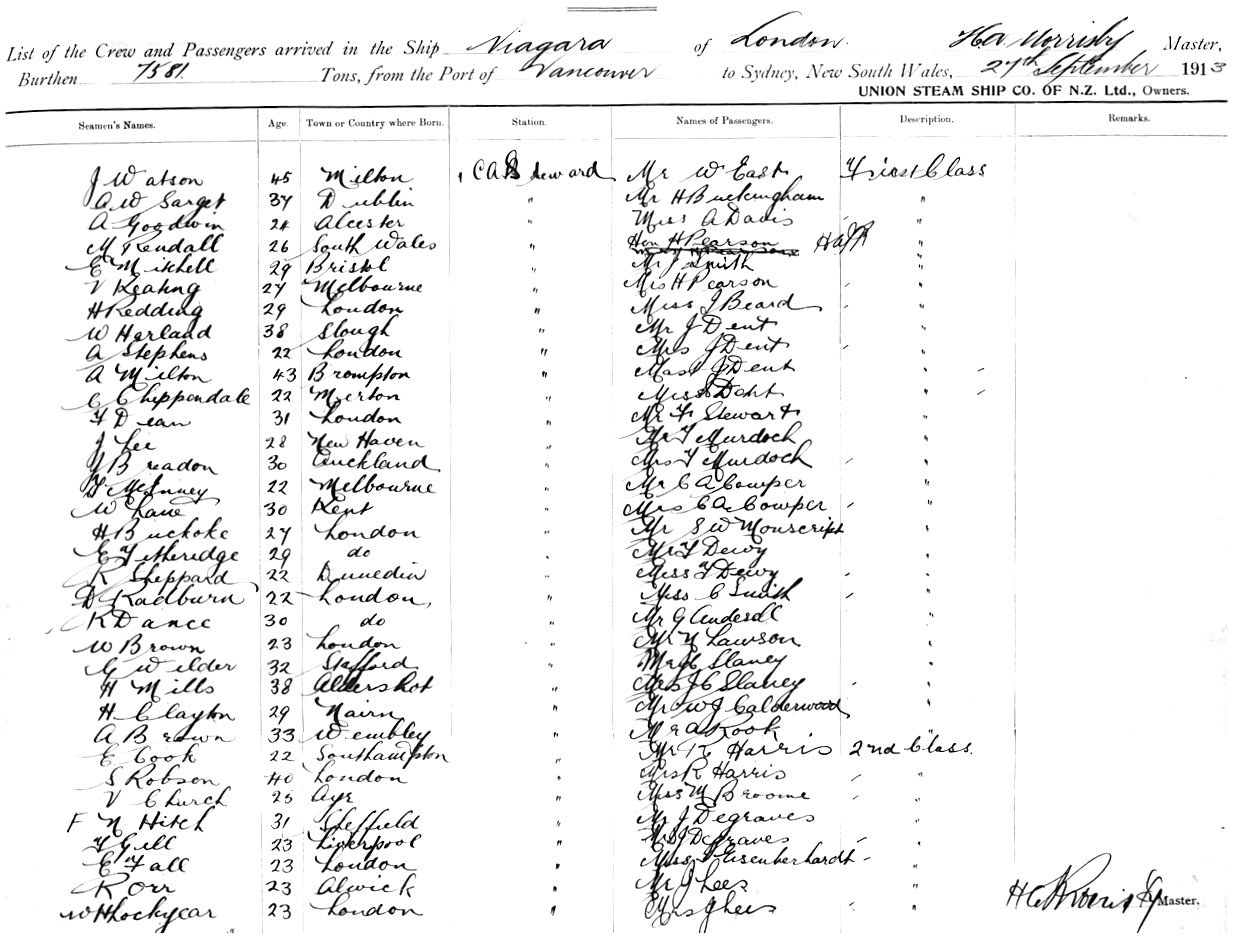 List of the Crew and Passengers arrived in the Ship Niagara of London. H.A. Morrisby Master,
Burthen 7581. Tons, from the Port of Vancouver to Sydney, New South Wales, 27th September 1913
UNION STEAM SHIP CO. OF N.Z. Ltd., Owners.
Seamen's Names. Age. Town or Country where Born. Station. Names of Passengers. Description. Remarks.
J Watson 45 Milton Steward Mr W East First Class
A W Sarget 37 Dublin " Mr H Buckingham "
A Goodwin 24 Alcester " Miss A Davis "
M Rendall 26 South Wales " Hon H Pearson "
E Mitchell 29 Bristol " Mr J Smith "
V Keating 27 Melbourne " Mrs H Pearson "
H Redding 29 London " Miss J Beard "
W Harland 38 Slough " Mr J Dent "
A Stephens 22 London " Mrs J Dent "
A Milton 43 Brompton " Mast J Dent "
C Chippendale 22 Merton " Miss Dent "
F Dean 31 London " Mr F Stewart "
J Lee 28 New Haven " Mr F Murdoch "
J Breadon 30 Auckland " Mrs F Murdoch "
22 Melbourne " Mr C A Cowper "
W Lane 30 Kent " Mrs C A Cowper "
H Buckoke 27 London " Mr S W Monscript "
E F Etheridge 29 do " Mr F Dewy "
R Sheppard 22 Dunedin " Miss F Dewy "
D Radburn 22 London, " Miss C Smith "
R Dance 30 do " Mr G "
W Brown 23 London " Mr N Lawson "
G Wilder 32 Stafford " Mr Slaney "
H Mills 38 Aldershot " Mrs J C Slaney "
H Clayton 29 Nairn " Mr W J Calderwood "
A Brown 33 Wembley " Mr A Rook "
E Cook 22 Southampton " Mr R Harris 2nd Class.
S Robson 40 London " Mrs R Harris "
V Church 25 Ayr " Miss M Broome "
F N Hitch 31 Sheffield " Mr J Degraves "
F Gill 23 Liverpool " Mrs J Degraves "
E Fall 23 London " Miss Eisenberhardt "
R Orr 23 Alwick " Mr J Lees "
W H Lockyear 23 London " Mrs J Lees " H A Morrisby Master.